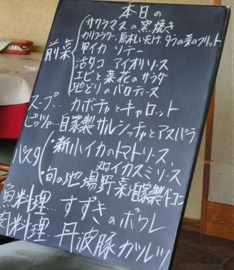 本日の
前菜
サクラマスの窯焼き
甲イカ ソテー
活タコ アイオリソース
エビと菜花のサラダ
地どりのバロティーヌ
スープ… カボチャとキャロット
ピッツァ… 自家製サルシッチャとアスパラ
パスタ
新小イカのトマトソース
対イカスミソース
旬の地場野菜と自家製ベーコン
魚料理… すずきのポワレ
肉料理… 丹波豚カツレツ